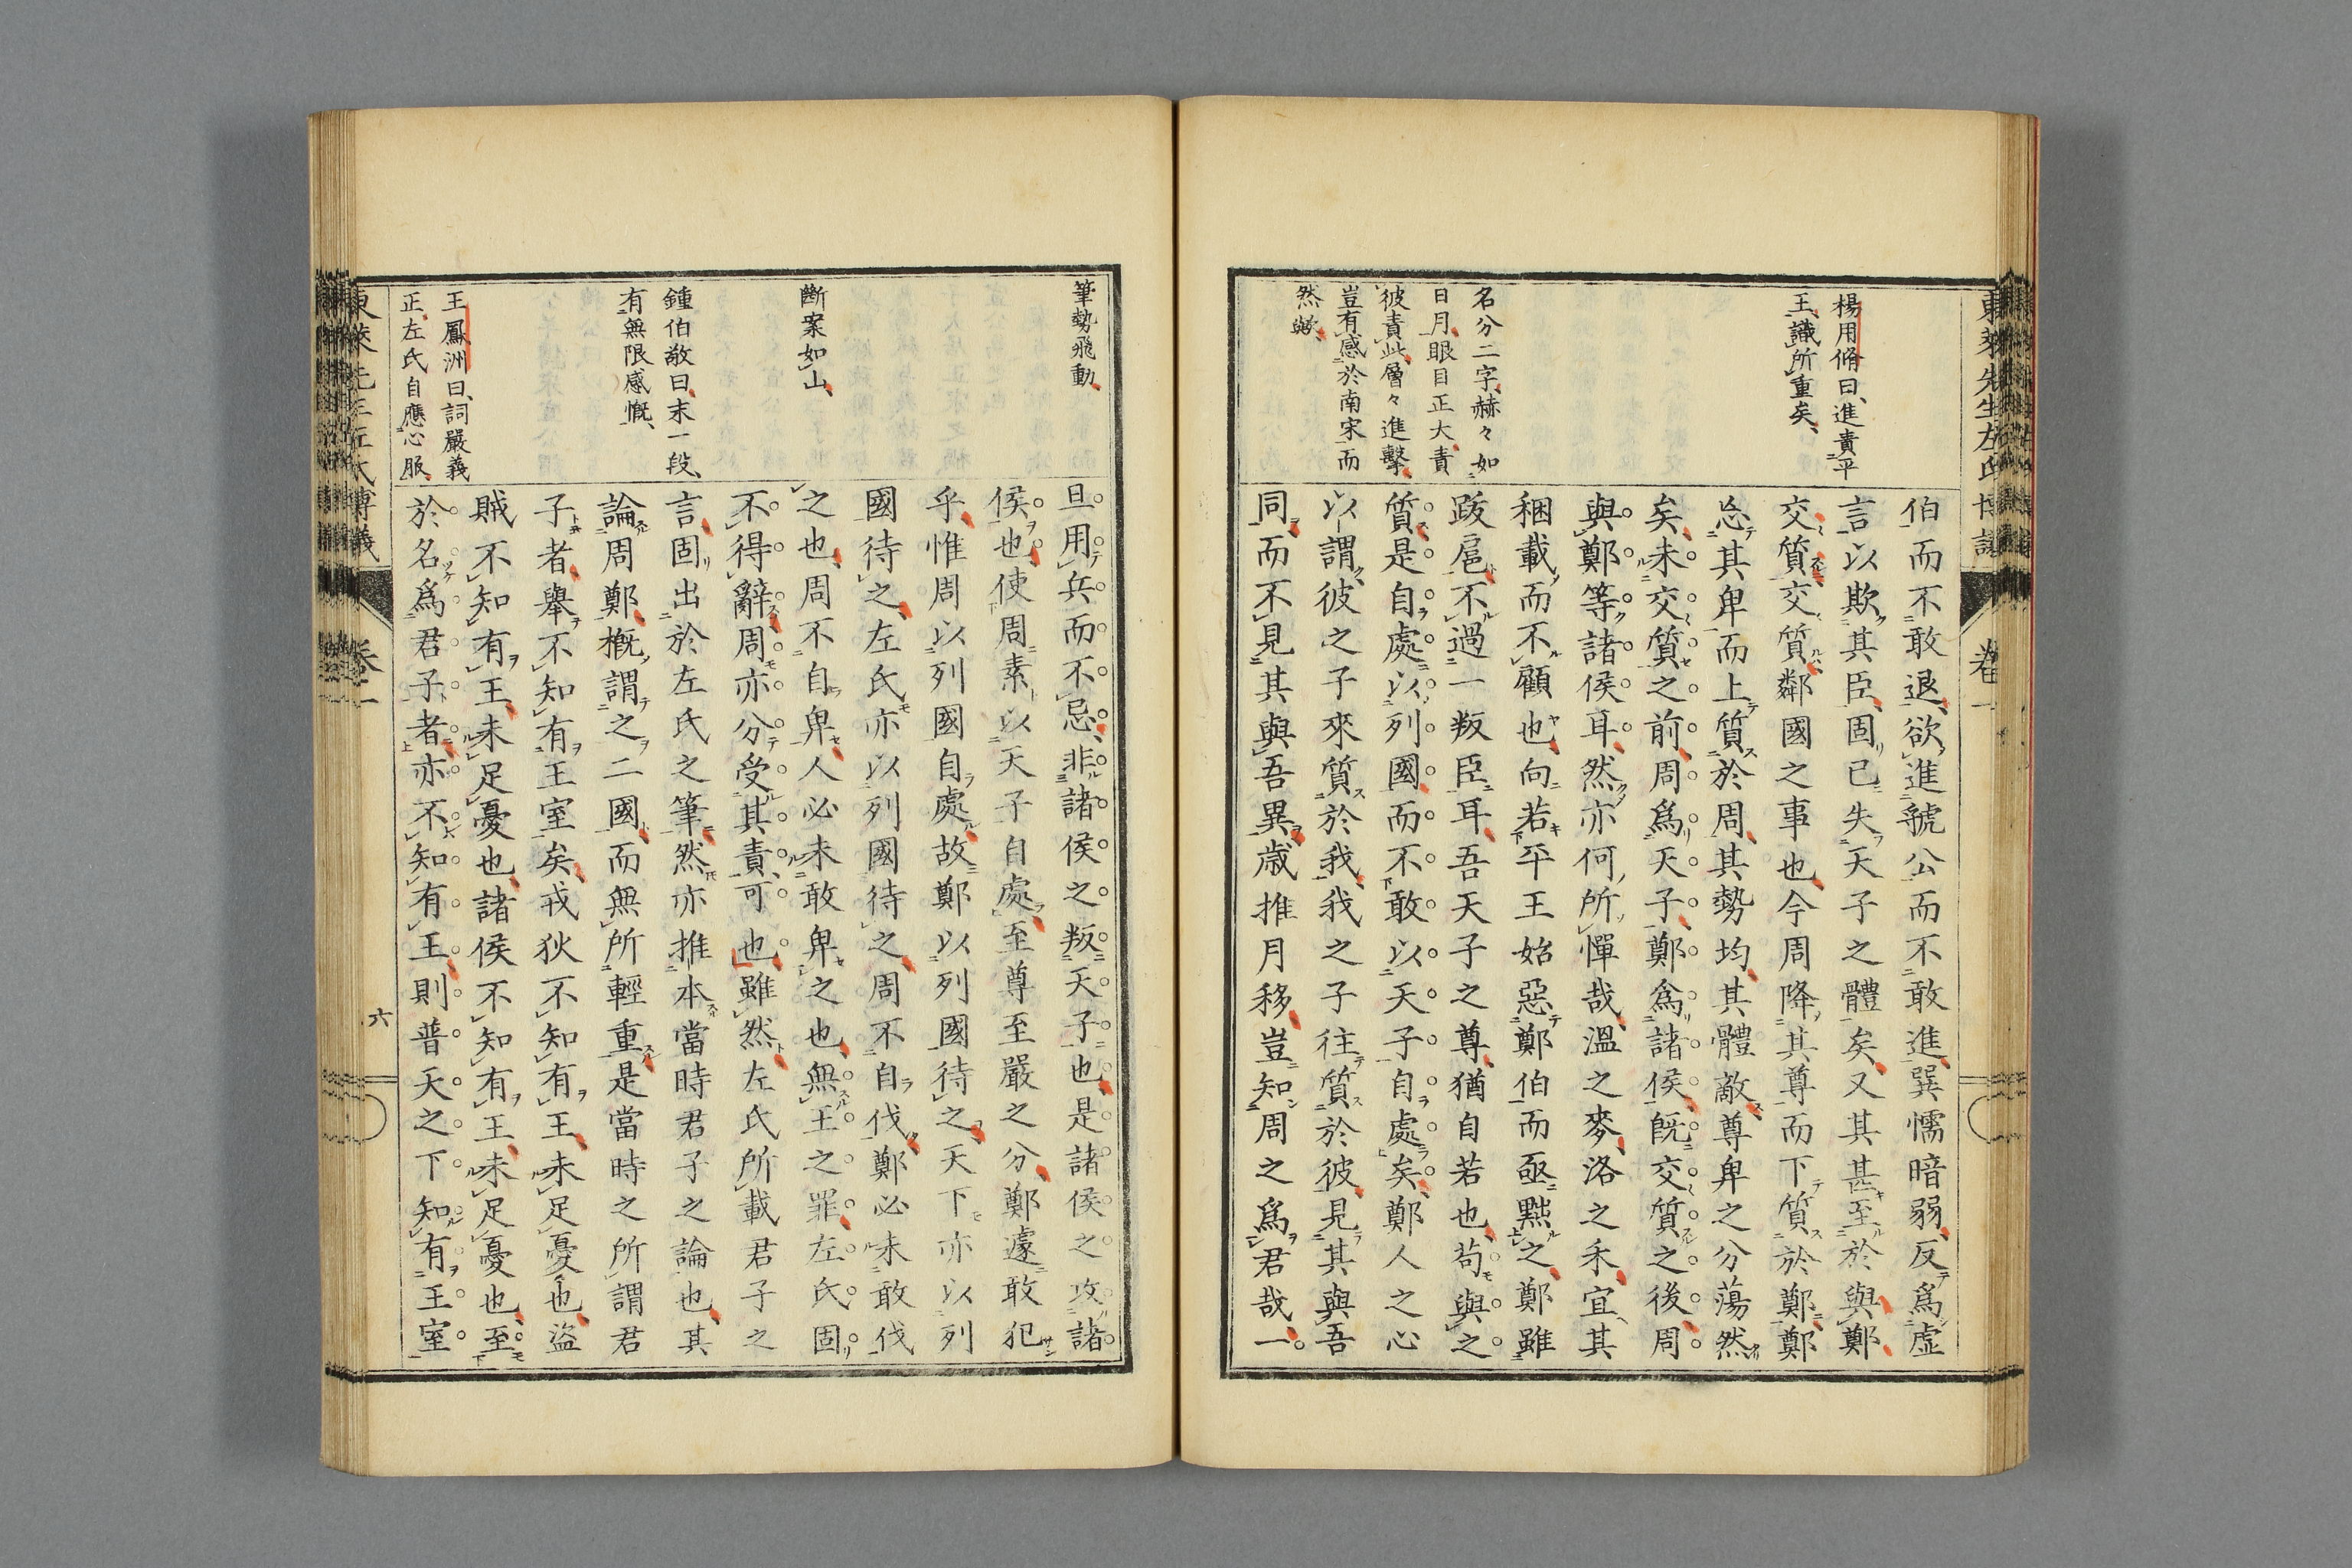 楊用脩曰、進責平
王、識所重矣、
名分二字、赫々如
日月、眼目正大、責
彼責此、層々進擊、
豈有感於南宋而
然歟、
伯而不敢退、欲進虢公而不敢進、巽懦暗弱、反爲虛
言以欺其臣、固已失天子之體矣、又其甚至於與鄭
交質、交質、鄰國之事也、今周降其尊而下質於鄭、鄭
忘其卑而上質於周、其勢均、其體敵、尊卑之分蕩然
矣、未交質之前、周爲天子、鄭爲諸侯、旣交質之後、周
與鄭等諸侯耳、然亦何所憚哉、溫之麥、洛之禾、宜其
稛載而不顧也、向若平王始惡鄭伯而亟黜之、鄭雖
跋扈、不過一叛臣耳、吾天子之尊、猶自若也、苟與之
質、是自處以列國、而不敢以天子自處矣、鄭人之心
以謂彼之子來質於我、我之子往質於彼、見其與吾
同、而不見其與吾異、歲推月移、豈知周之爲君哉、一
東萊先生左氏博議
卷一
筆勢飛動、
斷案如山、
鍾伯敬曰、末一段、
有無限感慨、
王鳳洲曰、詞嚴義
正、左氏自應心服、
旦用兵而不忌、非諸侯之叛天子也、是諸侯之攻諸
侯也、使周素以天子自處、至尊至嚴之分、鄭遽敢犯
乎、惟周以列國自處、故鄭以列國待之、天下亦以列
國待之、左氏亦以列國待之、周不自伐、鄭必未敢伐
之也、周不自卑、人必未敢卑之也、無王之罪、左氏固
不得辭、周亦分受其責可也、雖然、左氏所載君子之
言、固出於左氏之筆、然亦推本當時君子之論也、其
論周鄭、概謂之二國、而無所輕重、是當時之所謂君
子者、舉不知有王室矣、戎狄不知有王、未足憂也、盜
賊不知有王、未足憂也、諸侯不知有王、未足憂也、至
於名爲君子者、亦不知有王、則普天之下知有王室
東萊先生左氏博議
卷一
六